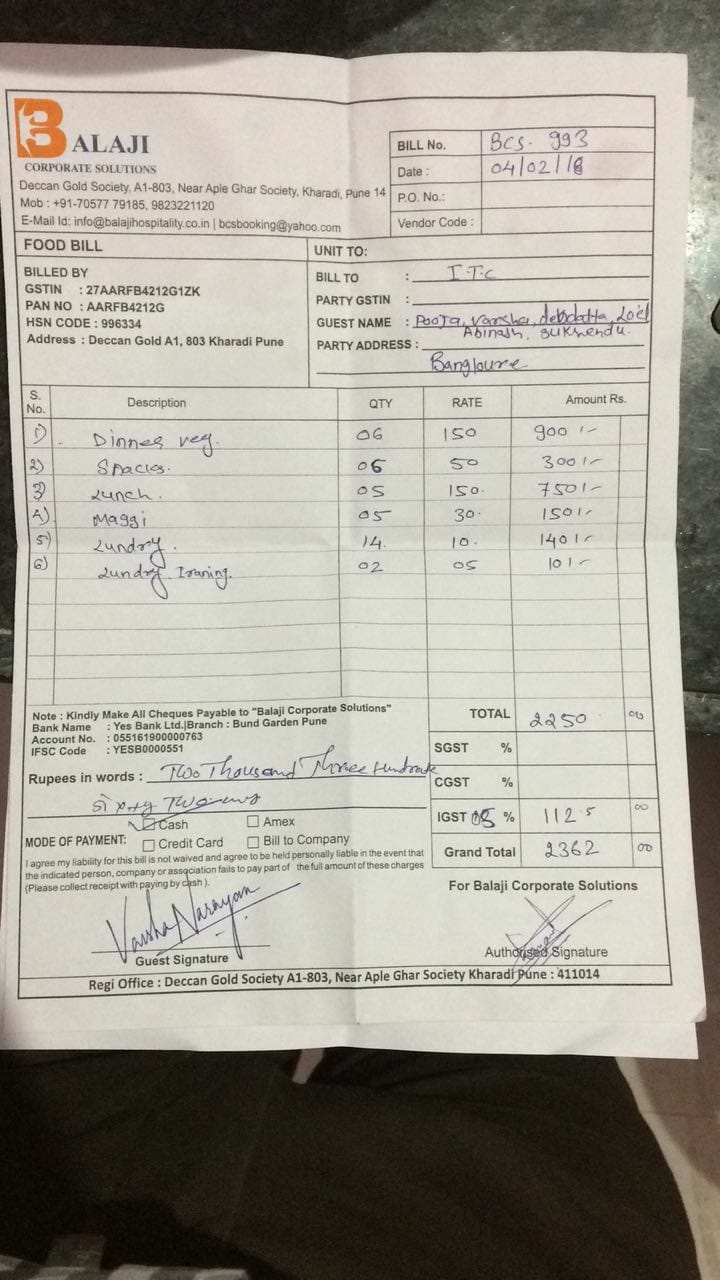 BALAJI
CORPORATE SOLUTIONS
Deccan Gold Society, A1-803, Near Aple Ghar Society, Kharadi, Pune 14
Mob : +91-70577 79185, 9823221120
E-Mail Id: info@balajihospitality.co.in | bcsbooking@yahoo.com
BILL No. BCS- 993
Date : 04/02/18
P.O. No.:
Vendor Code :
FOOD BILL
BILLED BY
GSTIN : 27AARFB4212G1ZK
PAN NO : AARFB4212G
HSN CODE : 996334
Address : Deccan Gold A1, 803 Kharadi Pune
UNIT TO:
BILL TO : I.T.C
PARTY GSTIN :
GUEST NAME : Pooja, varsha, debdatta, Loel
Abinash, sukhendu.
PARTY ADDRESS :
Bangloure
S. No. Description QTY RATE Amount Rs.
1) Dinner veg. 06 150 900/-
2) Snacks. 06 50 300/-
3) Lunch. 05 150. 750/-
4) Maggi 05 30. 150/-
5) Lundry. 14. 10. 140/-
6) Lundry Iraning. 02 05 10/-
Note : Kindly Make All Cheques Payable to "Balaji Corporate Solutions"
Bank Name : Yes Bank Ltd.|Branch : Bund Garden Pune
Account No. : 055161900000763
IFSC Code : YESB0000551
TOTAL 2250 00
SGST %
CGST %
IGST 05 % 112.5 00
Grand Total 2362 00
Rupees in words : Two Thousand Three Hundrade
Sixty Two
Cash Amex
MODE OF PAYMENT: Credit Card Bill to Company
I agree my liability for this bill is not waived and agree to be held personally liable in the event that
the indicated person, company or association fails to pay part of the full amount of these charges
(Please collect receipt with paying by cash ).
For Balaji Corporate Solutions
Varsha Narayan
Guest Signature
Authorised Signature
Regi Office : Deccan Gold Society A1-803, Near Aple Ghar Society Kharadi Pune : 411014